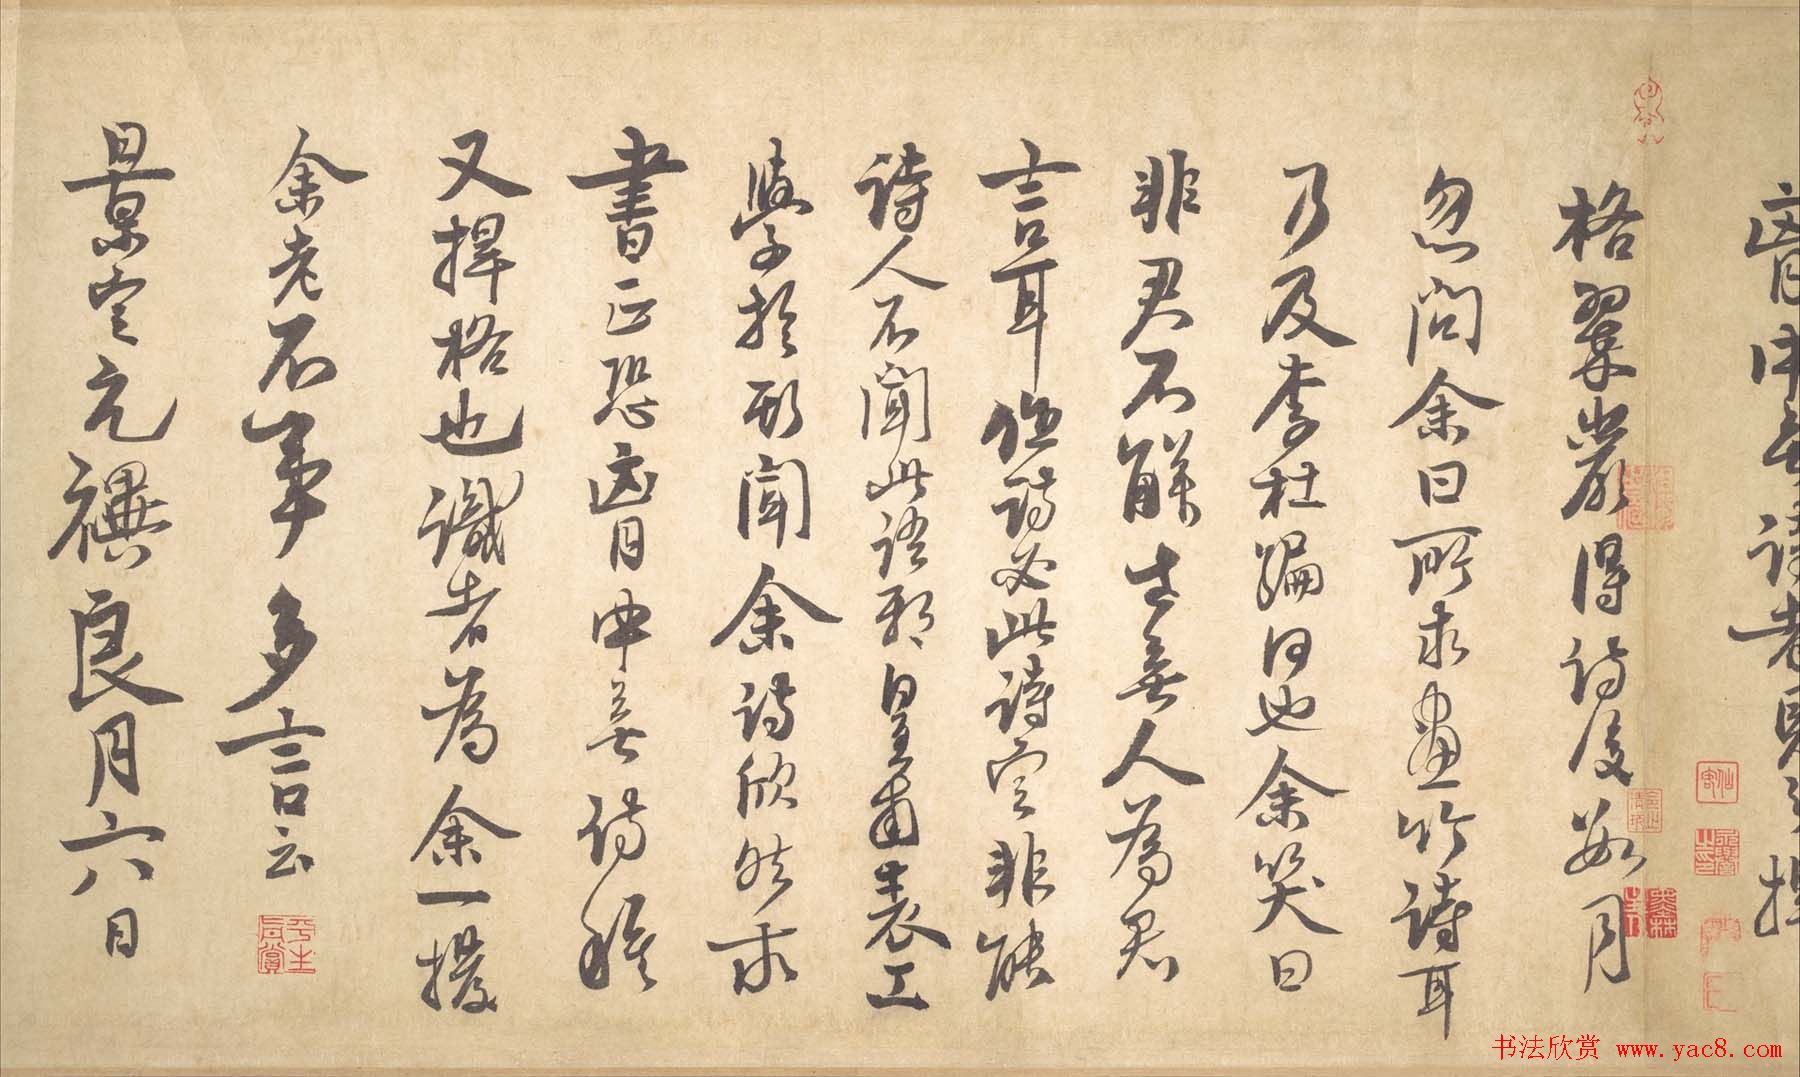 胸中無詩者見之捍
格翠嚴得詩後數月
忽問余曰所求畫竹詩耳
乃及李杜編何也余笑曰
非君不解古無人為君
言耳作詩必此詩定非能
詩人不聞此語邪皇甫表工
學於所聞余詩欣然求
書正恐胸中無詩疑
又捍格也識者為余一撥
余老不事多言云
景定元禩良月六日
书法欣赏 www.yac8.com